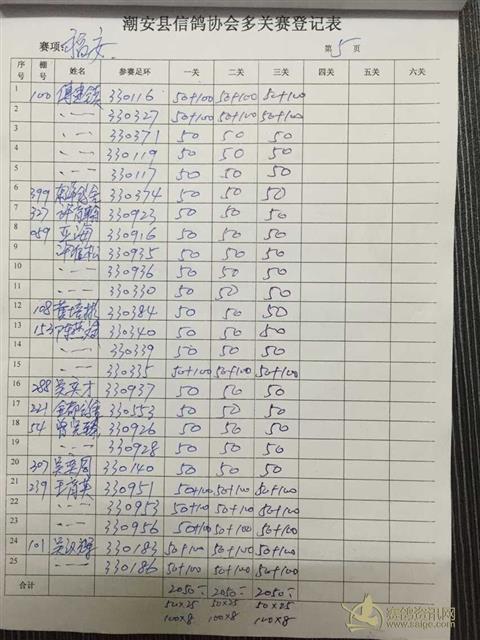 潮安县信鸽协会多关赛登记表
赛项: 福安 第 5 页
序号 棚号 姓名 参赛足环 一关 二关 三关 四关 五关 六关
1 100 330116 50+100 50+100 50+100
2 〃 330327 50+100 50+100 50+100
3 〃 330371 50 50 50
4 〃 330119 50 50 50
5 〃 330117 50 50 50
6 399 330374 50 50 50
7 327 330923 50 50 50
8 059 330916 50 50 50
9 330935 50 50 50
10 〃 330936 50 50 50
11 〃 330330 50 50 50
12 108 黄培彬 330384 50 50 50
13 153 330340 50 50 50
14 〃 330339 50 50 50
15 〃 330335 50+100 50+100 50+100
16 288 吴荣才 330937 50 50 50
17 221 330553 50 50 50
18 54 330926 50 50 50
19 〃 330928 50 50 50
20 307 330140 50 50 50
21 239 王育英 330951 50+100 50+100 50+100
22 〃 330953 50+100 50+100 50+100
23 〃 330956 50+100 50+100 50+100
24 101 330183 50+100 50+100 50+100
25 〃 330186 50+100 50+100 50+100
合计 2050 2050 2050
50×25 50×25 50×25
100×8 100×8 100×8
赛鸽资讯网
www.saige.com